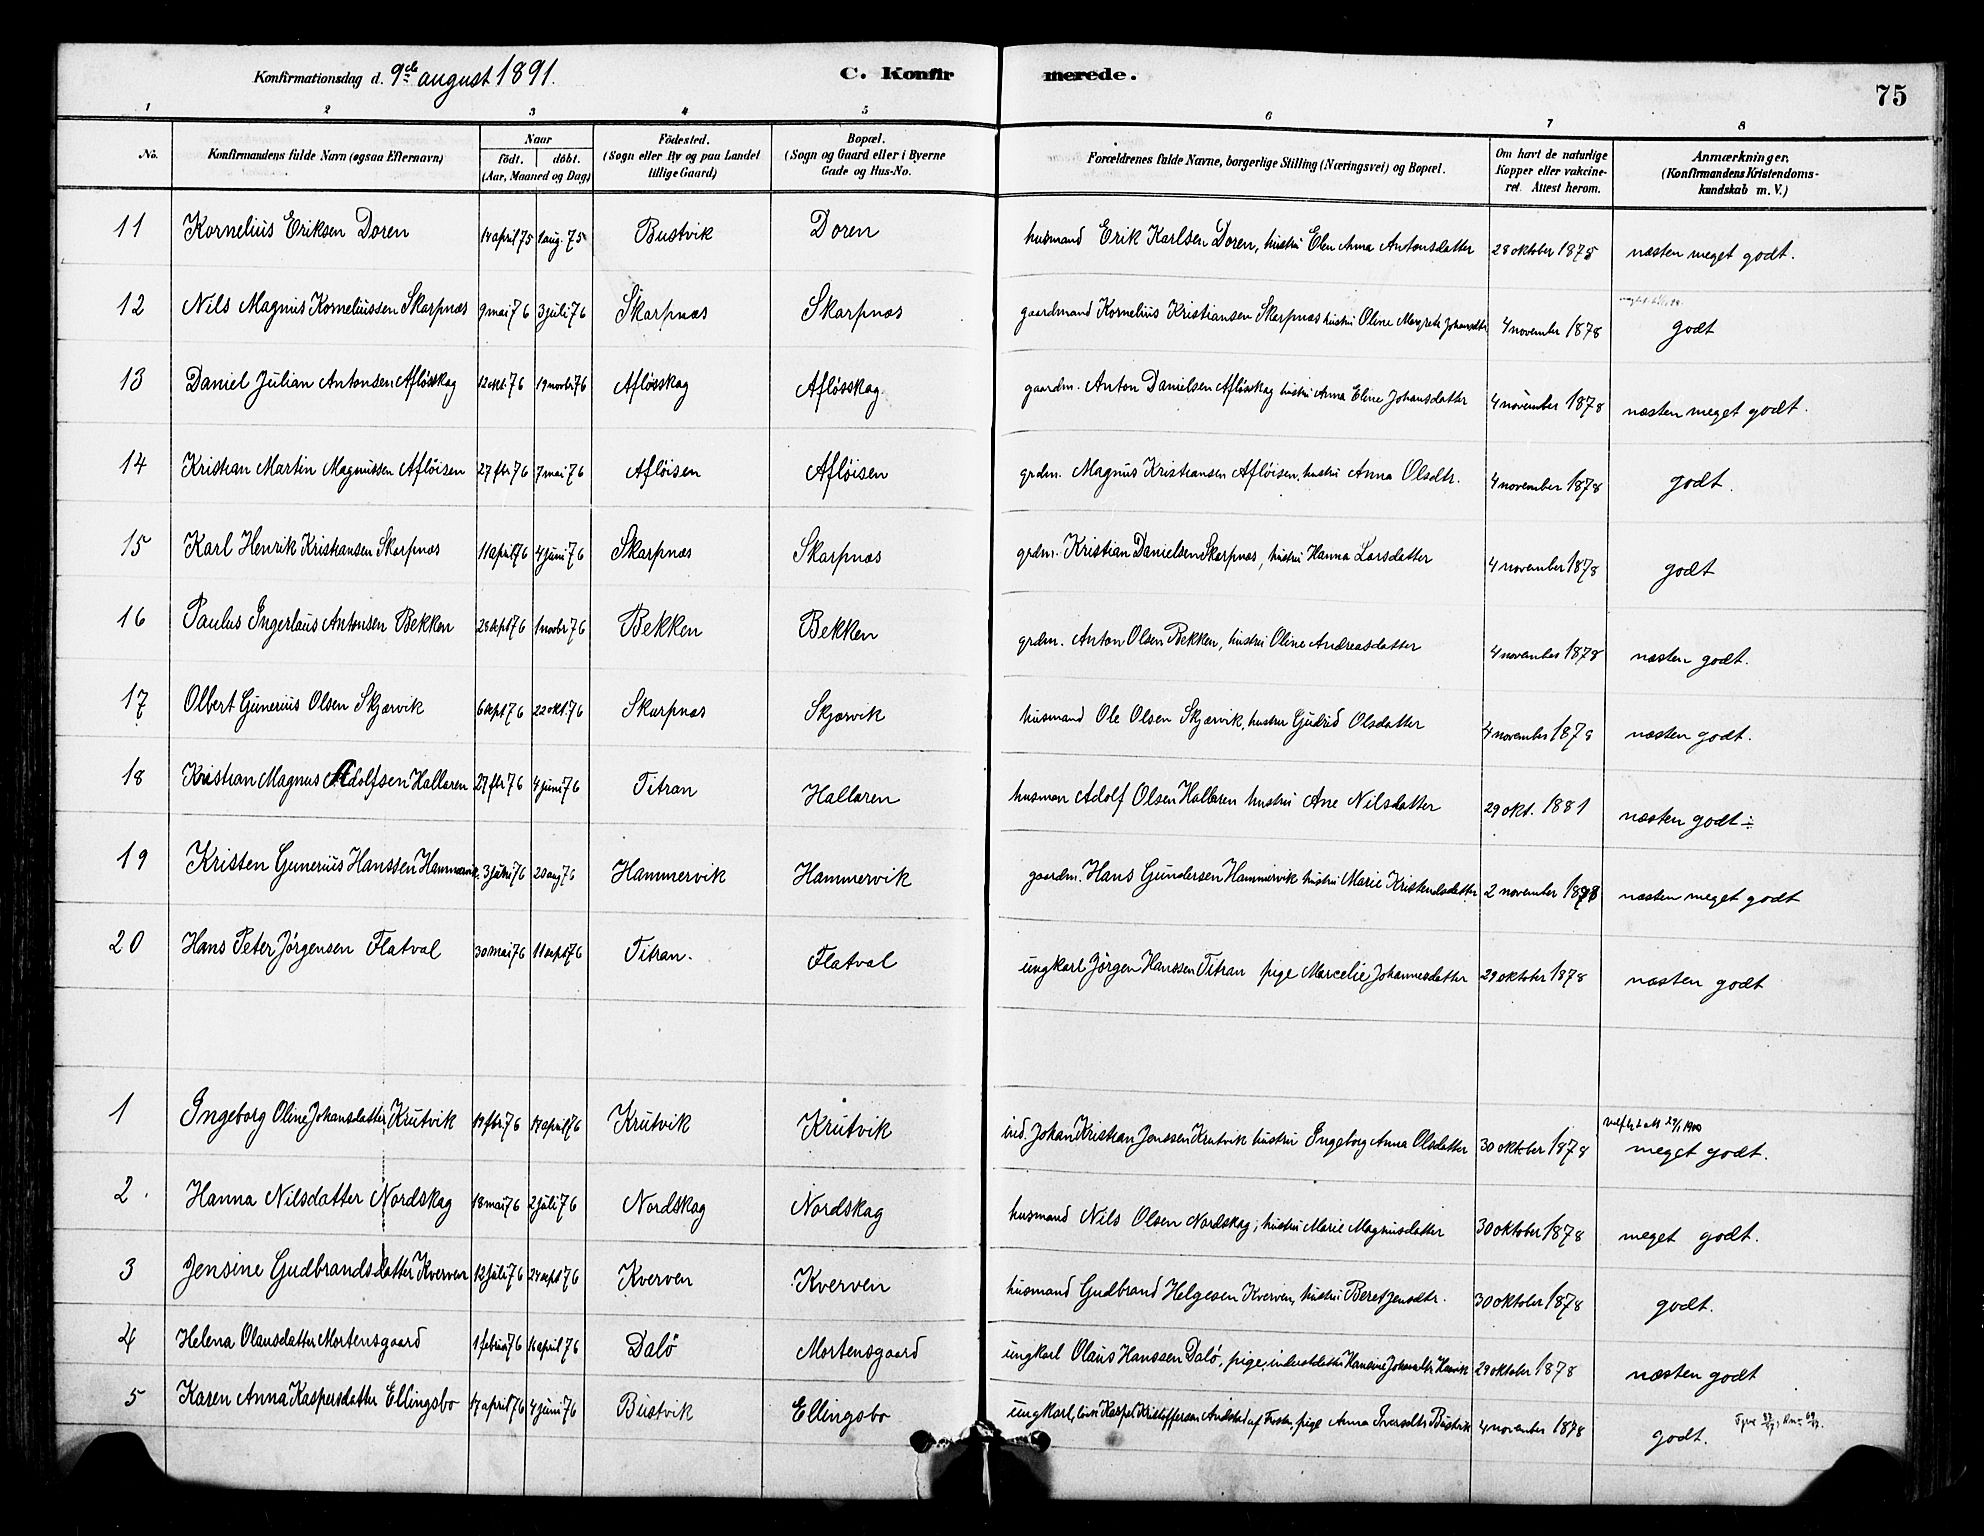 Konfirmationsdag d. 9de august 1891. C. Konfir merede. 75
1 2 3 4 5 6 7 8
No. Konfirmandens fulde Navn (ogsaa Efternavn) Naar født. døbt. (Aar, Maaned og Dag) Födested. (Sogn eller By og paa Landet tillige Gaard) Bopæl. (Sogn og Gaard eller i Byerne Gade og Hus-No. Forældrenes fulde Navne, borgerlige Stilling (Næringsvei) og Bopæl. Om havt de naturlige Kopper eller vakcineret. Attest herom. Anmærkninger. (Konfirmandens Kristendomskundskab m. V.)
11 Kornelius Eriksen Doren 14 april 75 1 aug. 75 Bustvik Doren husmand Erik Karlsen Doren, hustru Elen Anna Antonsdatter 28 oktober 1875 næsten meget godt.
12 Nils Magnus Korneliussen Skarpnæs 9 mai 76 3 juli 76 Skarpnæs Skarpnæs gaardmand Kornelius Kristiansen Skarpnæs hustru Oline Margrete Johansdtr 4 november 1878 godt
13 Daniel Julian Antonsen Afløsskag 12 okt. 76 19 novbr 76 Afløsskag Afløsskag. gaardm. Anton Danielsen Afløsskag hustru Anna Eline Johansdatter 4 november 1878 næsten meget godt.
14 Kristian Martin Magnussen Afløisen 27 fbr 76 7 mai 76 Afløisen Afløisen grdm. Magnus Kristiansen Afløisen, hustru Anna Olsdtr. 4 november 1878 godt.
15 Karl Henrik Kristiansen Skarpnæs 11 april 76 4 juni 76 Skarpnæs Skarpnæs grdm. Kristian Danielsen Skarpnæs, hustru Hanna Larsdatter 4 november 1878 godt
16 Paulus Ingerlaus Antonsen Bekken sept 76 1 novbr 76 Bekken Bekken grdm. Anton Olsen Bekken, hustru Oline Andreasdatter 4 november 1878 næsten godt.
17 Olbert Gunerius Olsen Skjærvik 6 sept 76 22 okt. 76 Skarpnæs Skjærvik husmand Ole Olsen Skjærvik, hustru Gudrid Olsdatter 4 november 1878 næsten godt.
18 Kristian Magnus Adolfsen Hallaren 27 fbr 76 4 juni 76 Titran Hallaren husman Adolf Olsen Hallaren hustru Ane Nilsdatter 29 okt. 1881 næsten godt ÷
19 Kristen Gunerius Hanssen Hammervik. 3 juni 76 20 aug 76 Hammervik Hammervik gaardm. Hans Gundersen Hammervik hustru Marie Kristensdatter 2 november 1878 næsten meget godt
20 Hans Peter Jørgensen Flatval 30 mai 76 11 sept 76 Titran. Flatval ungkarl Jörgen Hanssen Titran pige Marcelie Johannesdatter 29 oktober 1878 næsten godt
1 Ingeborg Oline Johansdatter Krutvik 19 fbr 76 17 april 76 Krutvik Krutvik ind. Johan Kristian Jenssen Krutvik hustru Ingeborg Anna Olsdatter 30 oktober 1878 meget godt.
2. Hanna Nilsdatter Nordskag 18 mai 76 2 juli 76 Nordskag Nordskag husmand Nils Olsen Nordskag, hustru Marie Magnusdatter 30 oktober 1878 meget godt.
3 Jensine Gudbrandsdatter Kverven 12 juli 76 24 sept 76 Kverven Kverven husmand Gudbrand Helgesen Kverven, hustru Beret Jensdtr. 30 oktober 1878 godt.
4 Helena Olausdatter Mortensgaard 1 februar 76 16 april 76 Dalö Mortensgaard ungkarl Olaus Hanssen Dalö, pige, 29 oktober 1878 næsten godt
5 Karen Anna Kaspersdatter Ellingsbo 17 april 76 4 juni 76 Bustvik Ellingsbo ungkarl, Kasper Kristoffersen af pige Anna Bustvik 4 november 1878 godt.